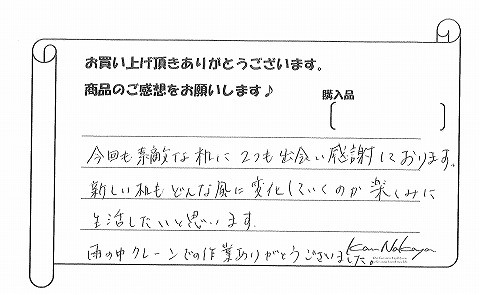 お買い上げ頂きありがとうございます。
商品のご感想をお願いします♪
購入品
今回も素敵な机に2つも出会い感謝しております。
新しい机もどんな風に変化していくのか楽しみに
生活したいと思います。
雨の中クレーンでの作業ありがとうございました。
KanNakaya